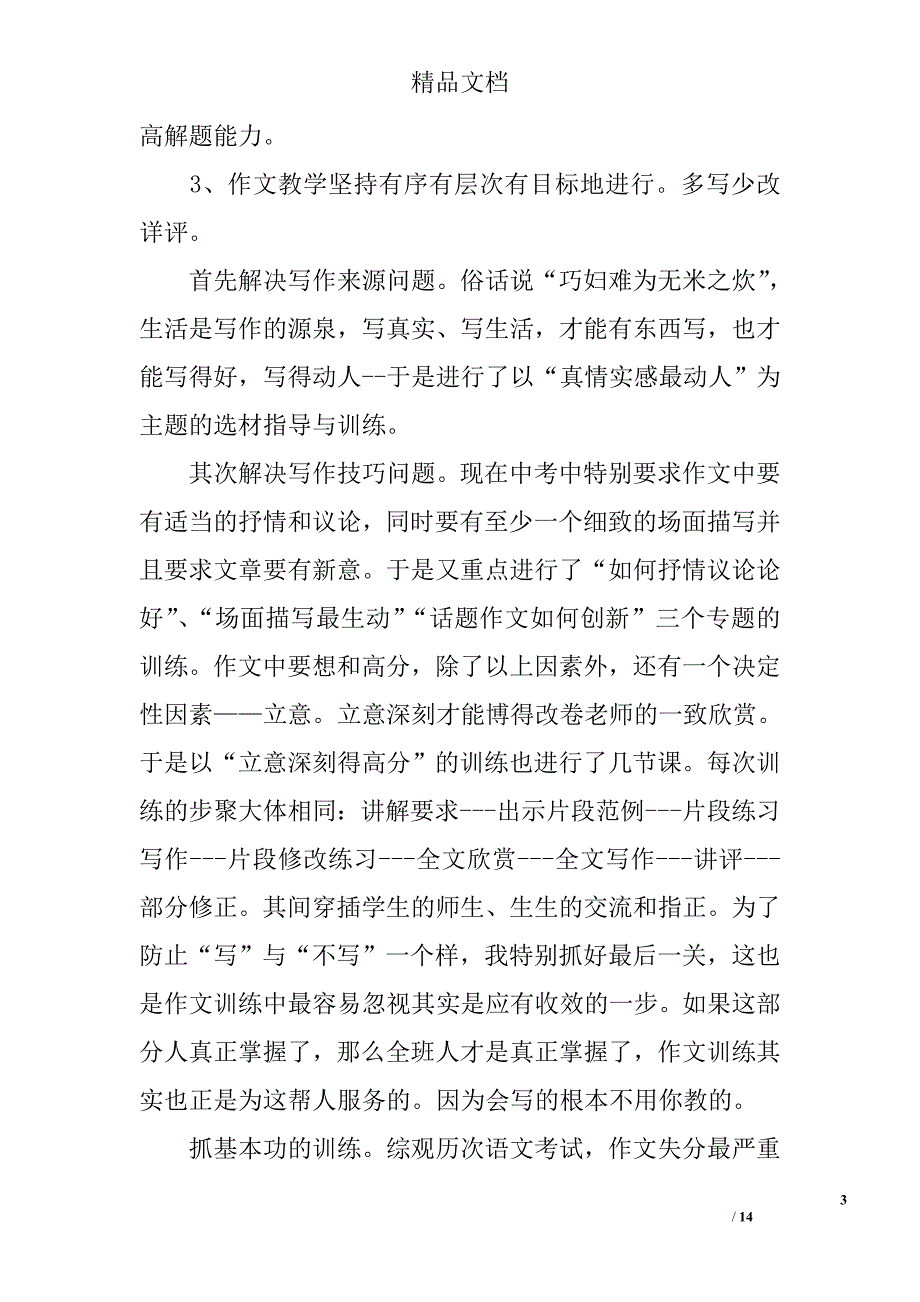 精品文档
高解题能力。
3、作文教学坚持有序有层次有目标地进行。多写少改
详评。
首先解决写作来源问题。俗话说“巧妇难为无米之炊”，
生活是写作的源泉，写真实、写生活，才能有东西写，也才
能写得好，写得动人--于是进行了以“真情实感最动人”为
主题的选材指导与训练。
其次解决写作技巧问题。现在中考中特别要求作文中要
有适当的抒情和议论，同时要有至少一个细致的场面描写并
且要求文章要有新意。于是又重点进行了“如何抒情议论论
好”、“场面描写最生动”“话题作文如何创新”三个专题的
训练。作文中要想和高分，除了以上因素外，还有一个决定
性因素——立意。立意深刻才能博得改卷老师的一致欣赏。
于是以“立意深刻得高分”的训练也进行了几节课。每次训
练的步聚大体相同：讲解要求---出示片段范例---片段练习
写作---片段修改练习---全文欣赏---全文写作---讲评---
部分修正。其间穿插学生的师生、生生的交流和指正。为了
防止“写”与“不写”一个样，我特别抓好最后一关，这也
是作文训练中最容易忽视其实是应有收效的一步。如果这部
分人真正掌握了，那么全班人才是真正掌握了，作文训练其
实也正是为这帮人服务的。因为会写的根本不用你教的。
抓基本功的训练。综观历次语文考试，作文失分最严重
3
/ 14